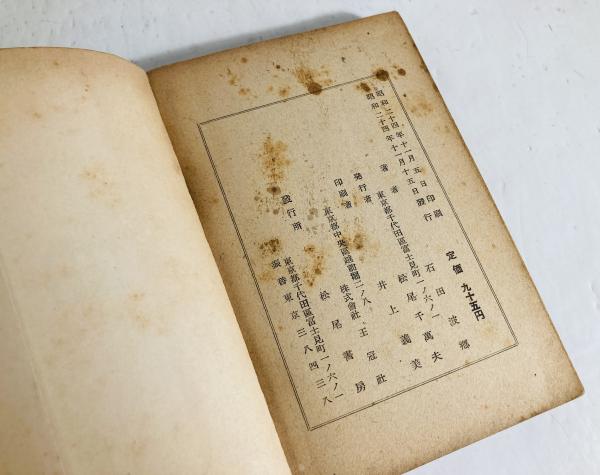 定価　九十五円
昭和二十四年十一月五日印刷
昭和二十四年十一月十五日發行
著者　石田波郷
東京都千代田區富士見町一ノ六ノ一
發行者　松尾千萬夫
印刷者　井上義美
東京都中央區
二ノ八
株式會社　王冠社
發行所　松尾書房
東京都千代田區富士見町一ノ六ノ一
振替東京三八四三八